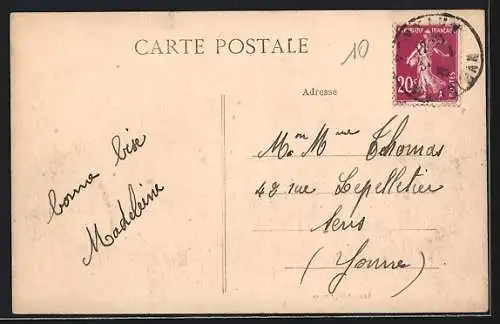 CARTE POSTALE
10
RÉPUBLIQUE FRANÇAISE
20c
POSTES
Adresse
bonne bise
Madeleine
Mon Mme Thomas
48 rue Lepelletier
Sens
(Yonne)